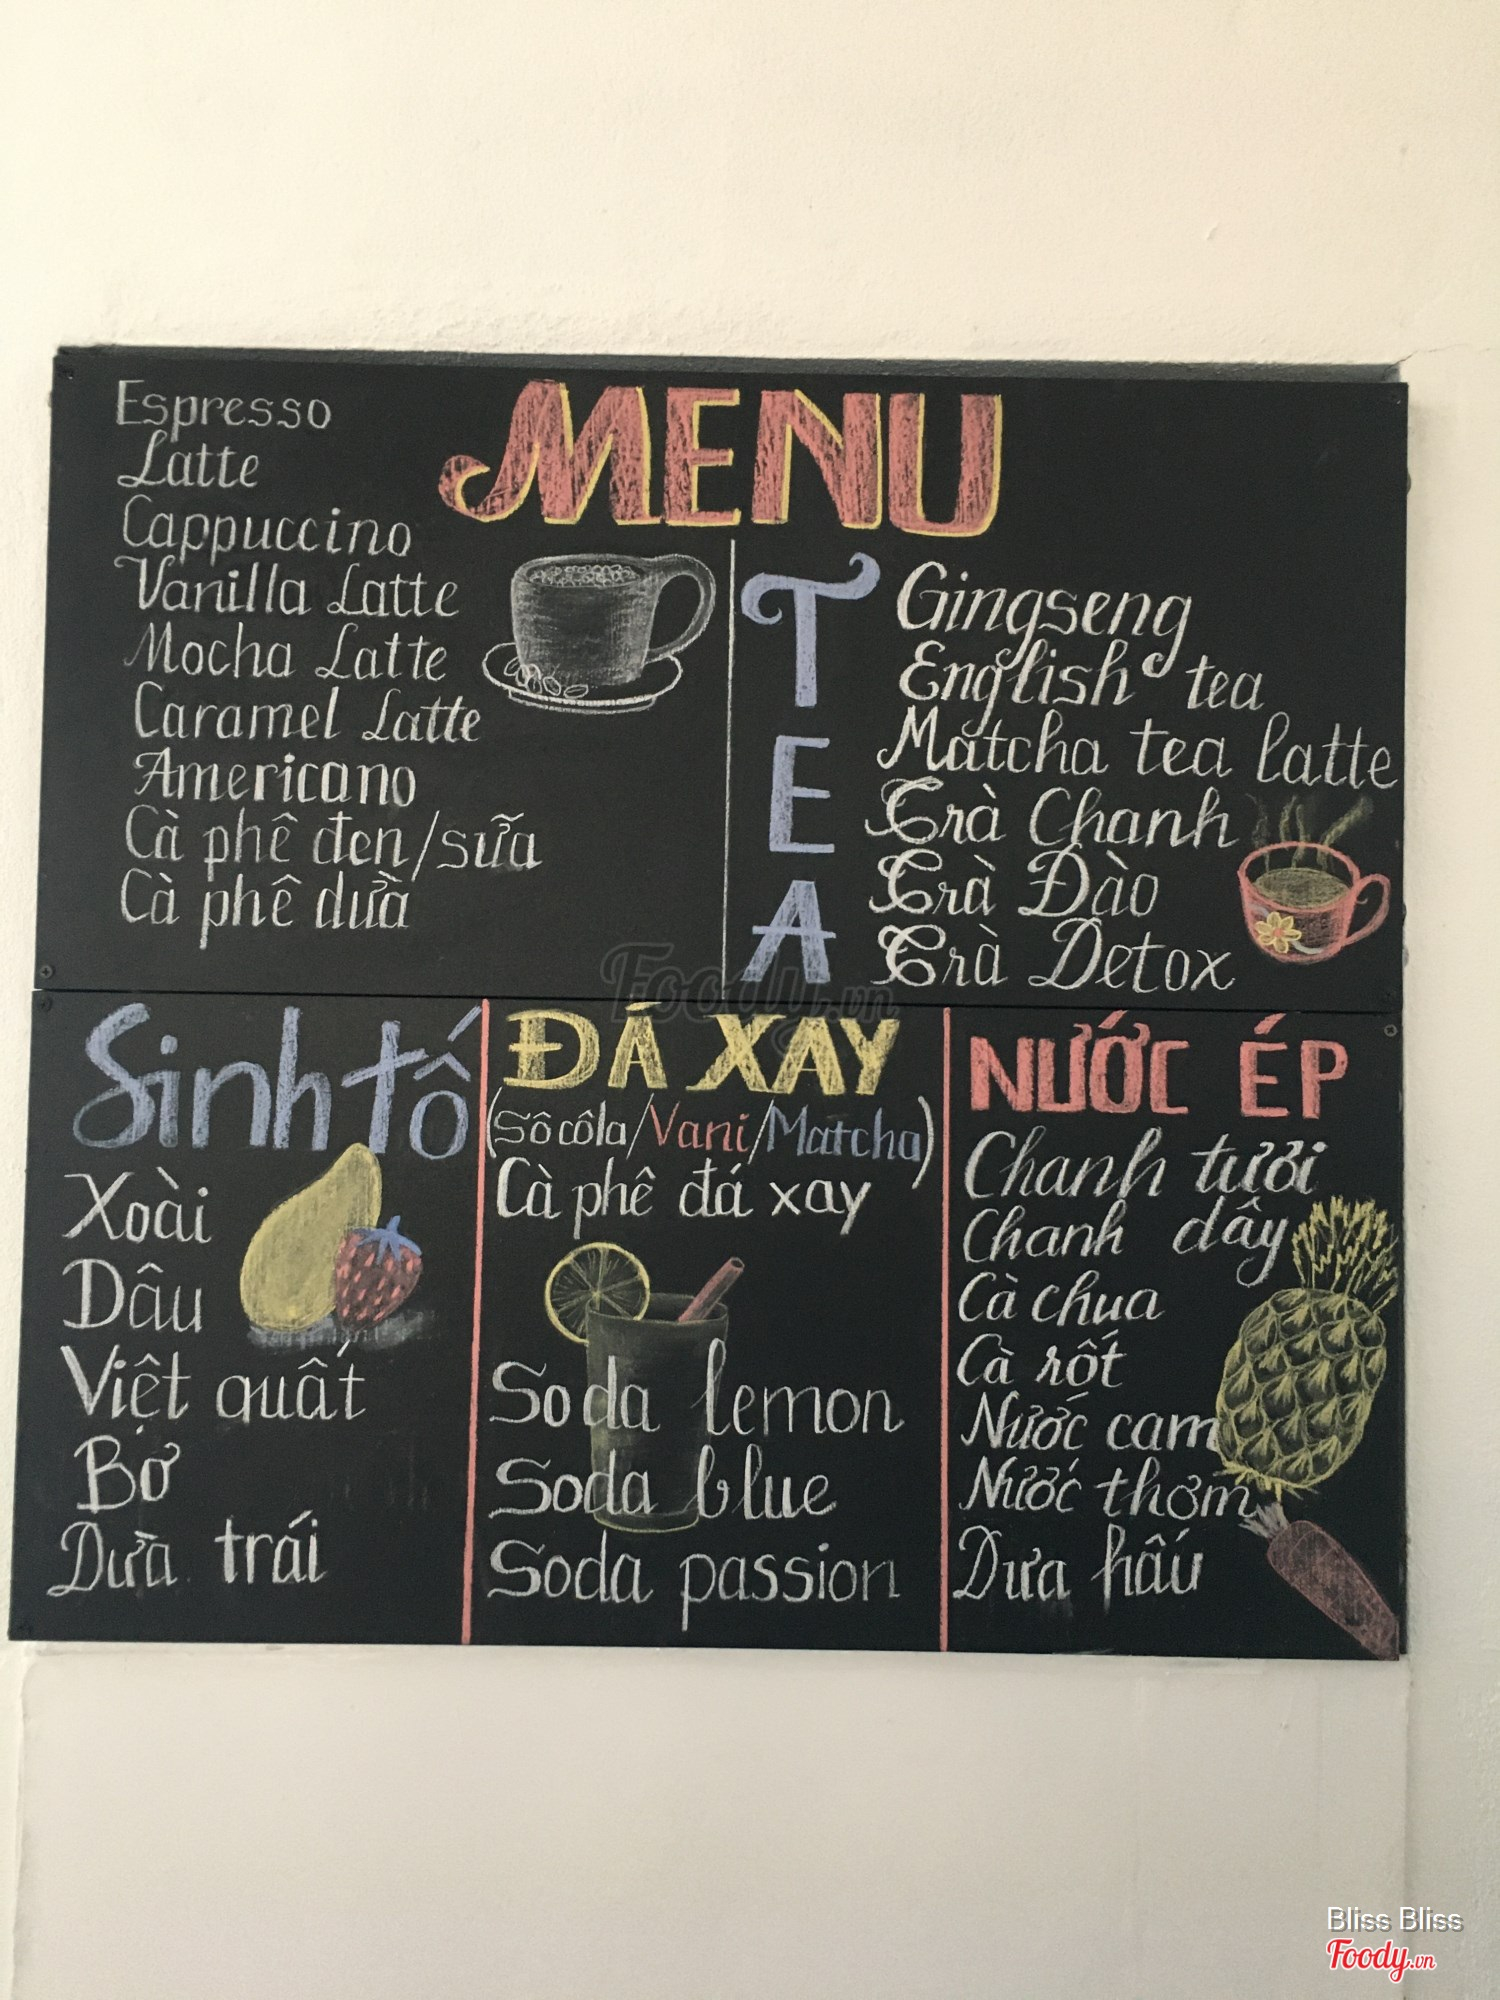 MENU
Espresso
Latte
Cappuccino
Vanilla Latte
Mocha Latte
Caramel Latte
Americano
Cà phê đen/sữa
Cà phê dừa
TEA
Gingseng
English tea
Matcha tea latte
Trà Chanh
Trà Đào
Trà Detox
Foody.vn
Sinh tố
Xoài
Dâu
Việt quất
Bơ
Dừa trái
ĐÁ XAY
(Sôcôla/Vani/Matcha)
Cà phê đá xay
Soda lemon
Soda blue
Soda passion
NƯỚC ÉP
Chanh tươi
Chanh dây
Cà chua
Cà rốt
Nước cam
Nước thơm
Dưa hấu
Bliss Bliss
Foody.vn